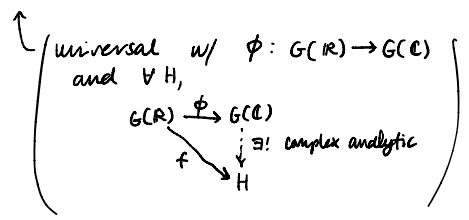 universal w/ ϕ: G(ℝ) → G(ℂ)
and ∀ H,
G(ℝ) ϕ→ G(ℂ)
f ∃! complex analytic
H